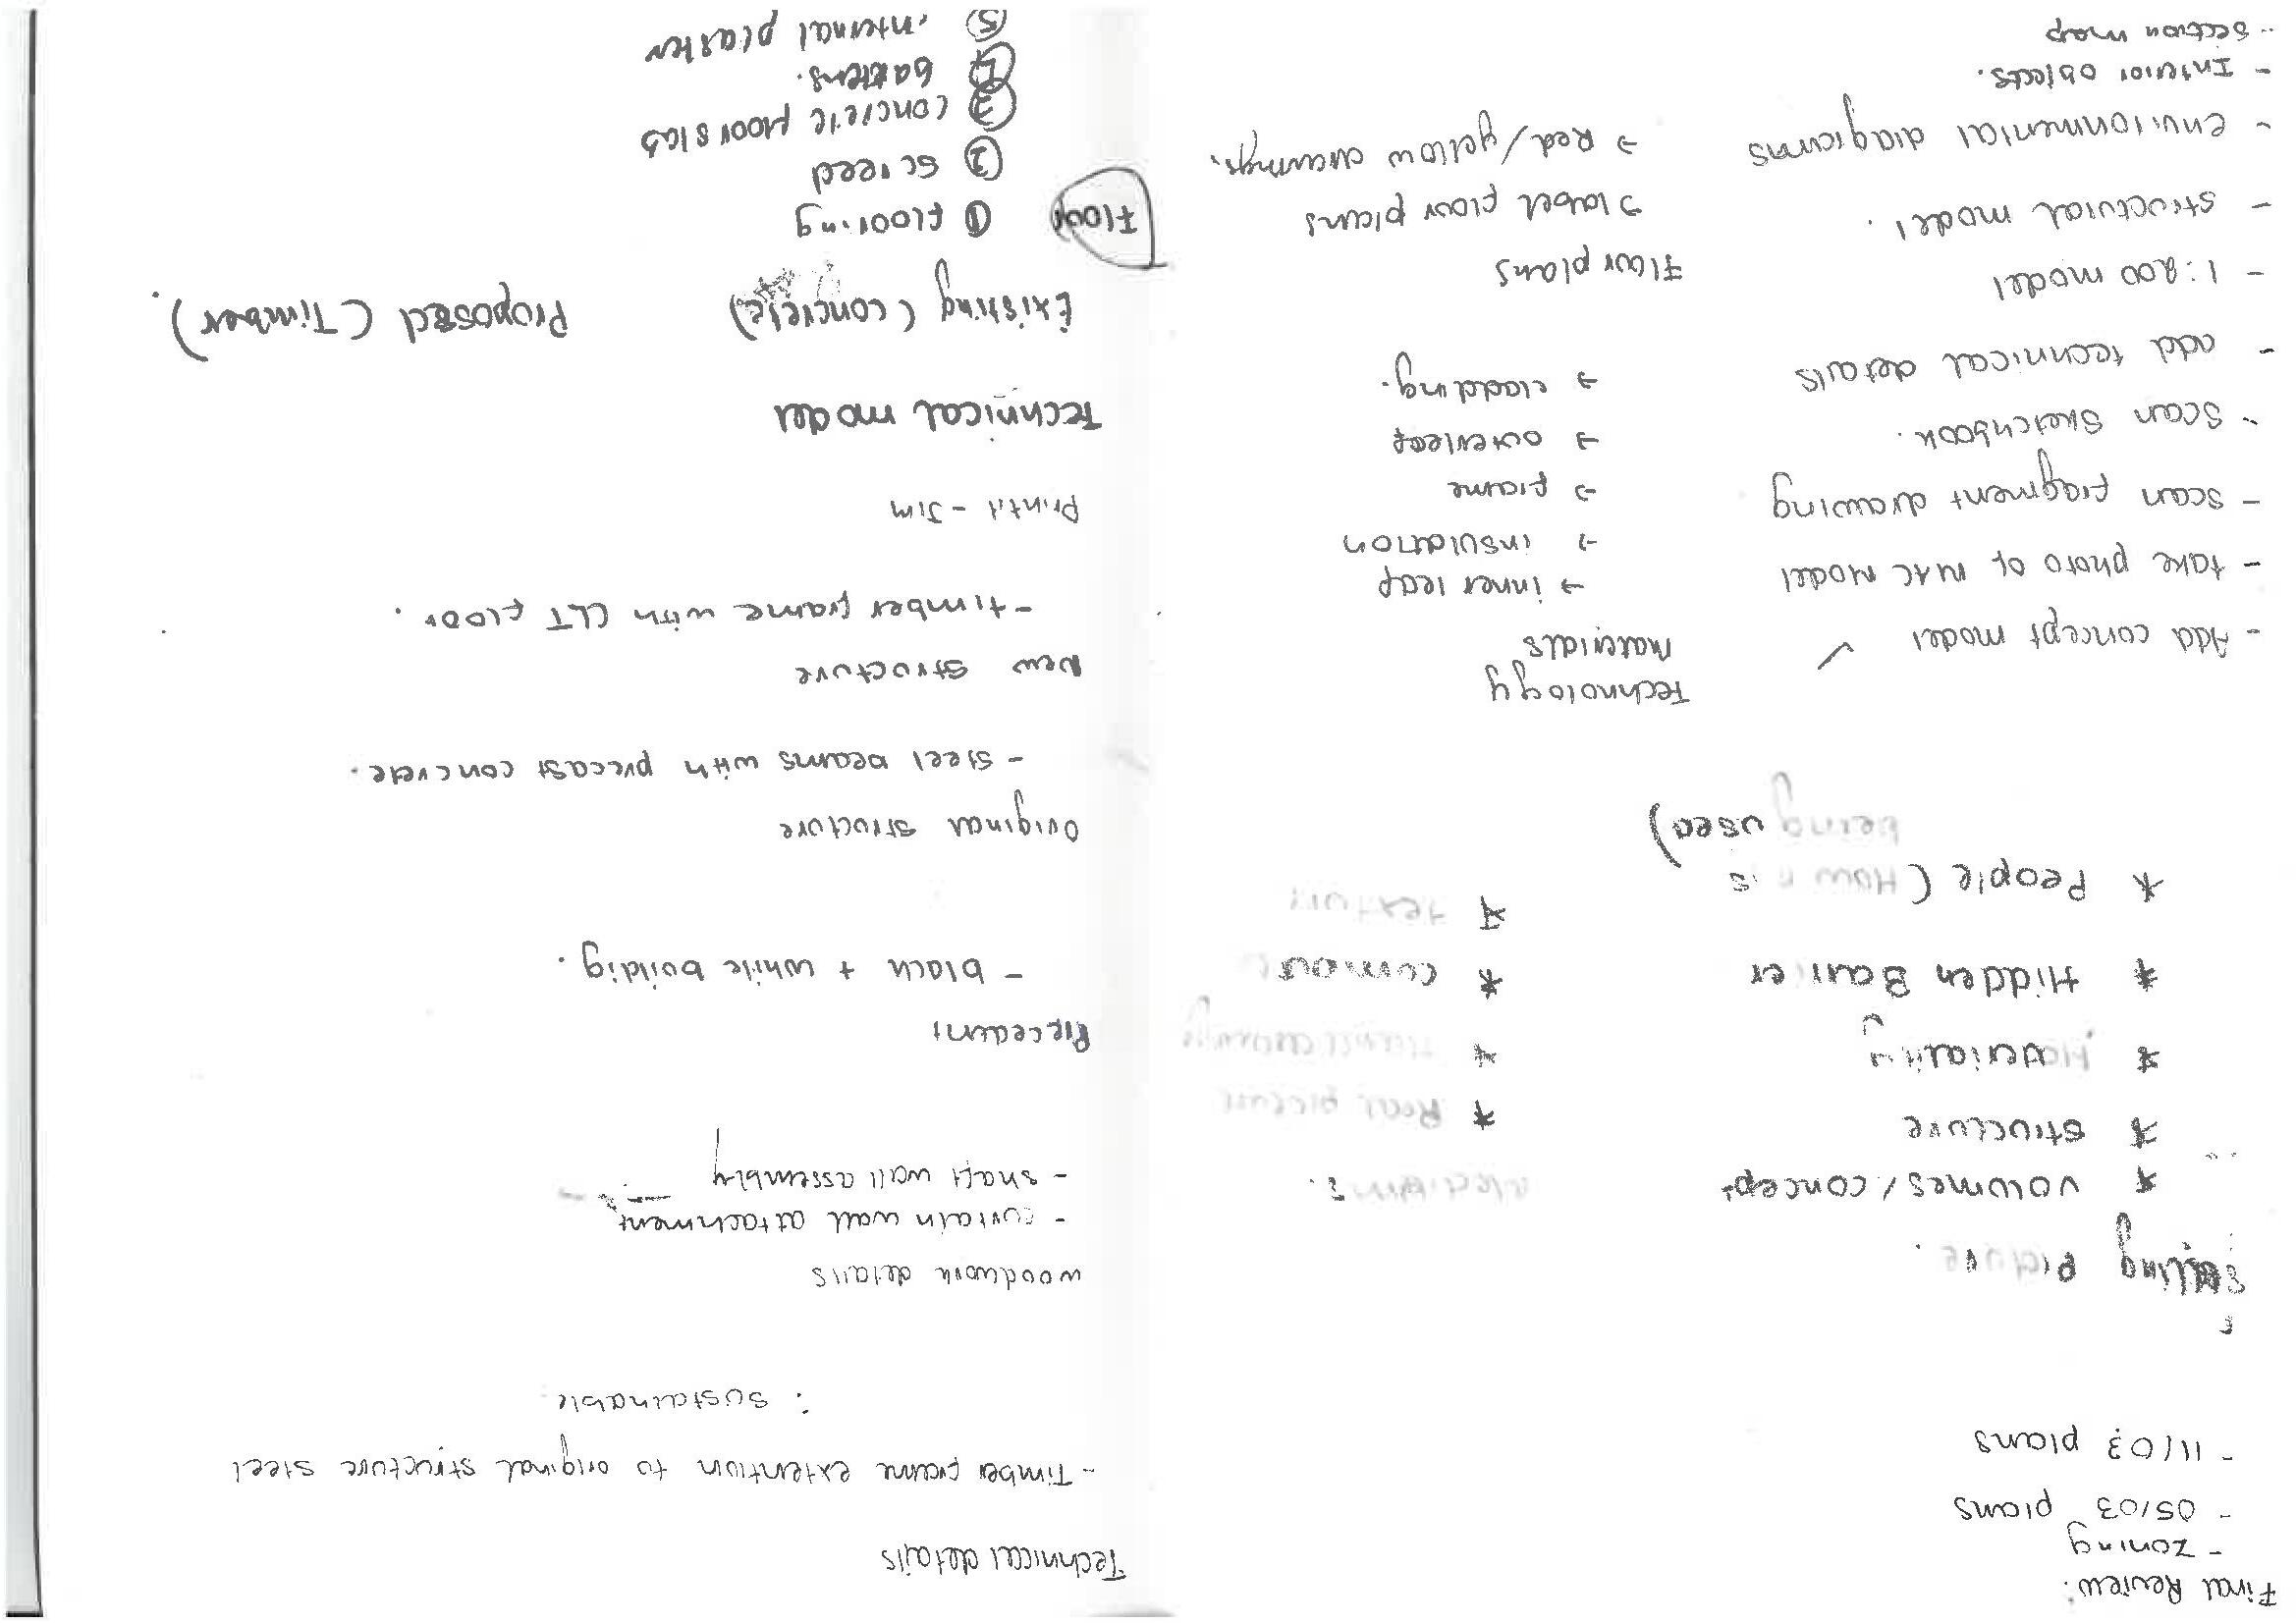 Final Review:
- zoning
- 05/03 plans
- 11/03 plans
* volumes/concept
* structure
* Hidden Barrier
* People (How it is
being used)
* Real picture
* texture
Technology
Materials
- Add concept model ✓
→ inner leaf
- take photo of MAC Model
→ insulation
- scan fragment drawing
→ frame
- scan sketchbook.
→ overleaf
- add technical details
→ cladding.
- 1:200 model
Floor plans
- structural model.
→ label floor plans
- environmental diagrams
→ Red/yellow drawings.
- Interior objects.
- section map
Technical details
- Timber frame extention to original structure steel
: sustainable
woodwork details
- curtain wall attachment
- shaft wall assembly
Precedent
- black + white boilding.
Original structure
- steel beams with precast concrete.
New structure
- timber frame with CLT floor.
Print it - Jim
Technical model
Existing (concrete) Proposed (Timber).
Floor ① flooring
② screed
③ concrete floor slab
④ battens.
⑤ internal plaster